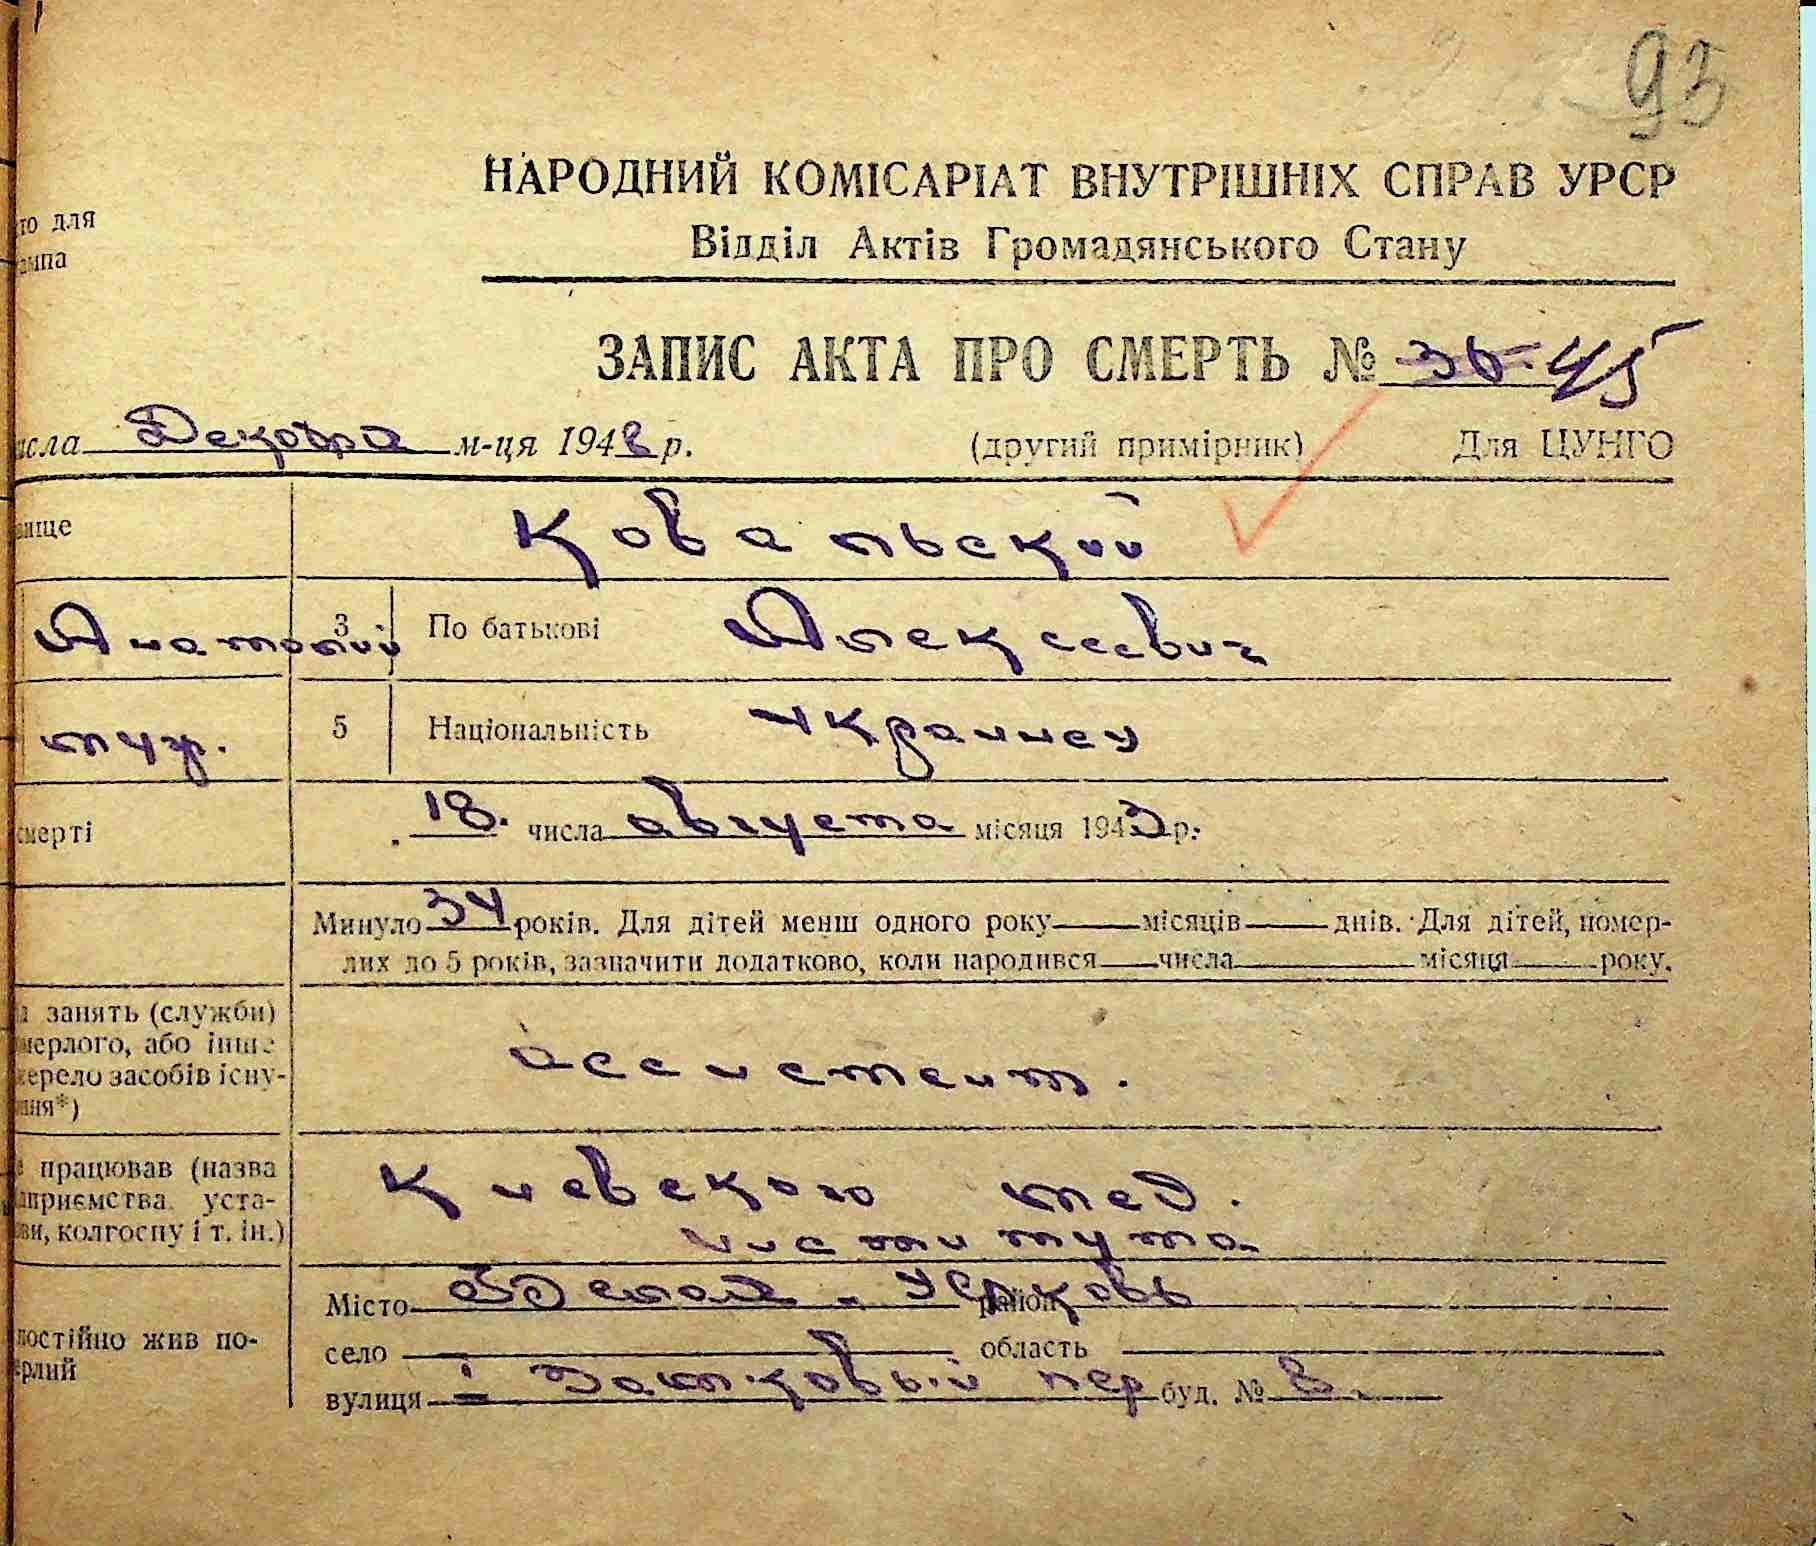 93
НАРОДНИЙ КОМІСАРІАТ ВНУТРІШНІХ СПРАВ УРСР
то для
ампа
Відділ Актів Громадянського Стану
ЗАПИС АКТА ПРО СМЕРТЬ № 36 45
исла Декабря м-ця 1943 р. (другий примірник) Для ЦУНГО
вище Ковальский
Анатолий 3 По батькові Алексеевич
муж. 5 Національність Украинец
смерті 18. числа августа місяця 1943 р.
Минуло 34 років. Для дітей менш одного року місяців днів. Для дітей, помер-
лих до 5 років, зазначити додатково, коли народився числа місяця року.
занять (служби)
мерлого, або інше
жерело засобів існу-
ання*)
ассистент.
працював (назва
дприємства, уста-
ови, колгоспу і т. ін.)
Киевского мед.
института
Місто Белая-Церковь район
постійно жив по-
ерлий
село область
вулиця І Замковый пер буд. № 8.